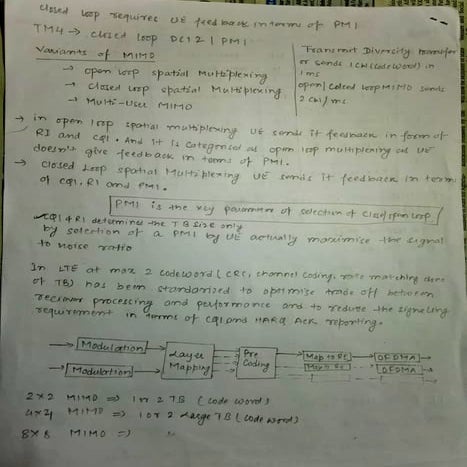 closed loop requires UE feedback in terms of PMI
TM4 → closed loop DCI 2 | PMI
Variants of MIMO
→ open loop spatial Multiplexing
→ closed loop spatial Multiplexing
→ Multi-User MIMO
Transmit Diversity transfer
or sends 1 CW (codeword) in
1ms
open/closed loop MIMO sends
2 CW/ms
→ in open loop spatial multiplexing UE sends it feedback in form of
RI and CQI. And it is categorised as open loop multiplexing as UE
doesn't give feedback in terms of PMI.
→ closed Loop spatial Multiplexing UE sends it feedback in term
of CQI, RI and PMI.
PMI is the key parameter of selection of close/open loop
CQI & RI determine the TB size only
by selection of a PMI by UE actually maximise the signal
to noise ratio
In LTE at max 2 codeword (CRC, channel coding, rate matching done
of TB) has been standarized to optimise trade off between
reciever processing and performance and to reduce the signaling
requirement in terms of CQI and HARQ Ack reporting.
Modulation
Modulation
Layer
Mapping
Pre
Coding
Map to RE
Map to RE
OFDMA
OFDMA
2x2 MIMO => 1 or 2 TB (code word)
4x4 MIMO => 1 or 2 Large TB (code word)
8x8 MIMO =>